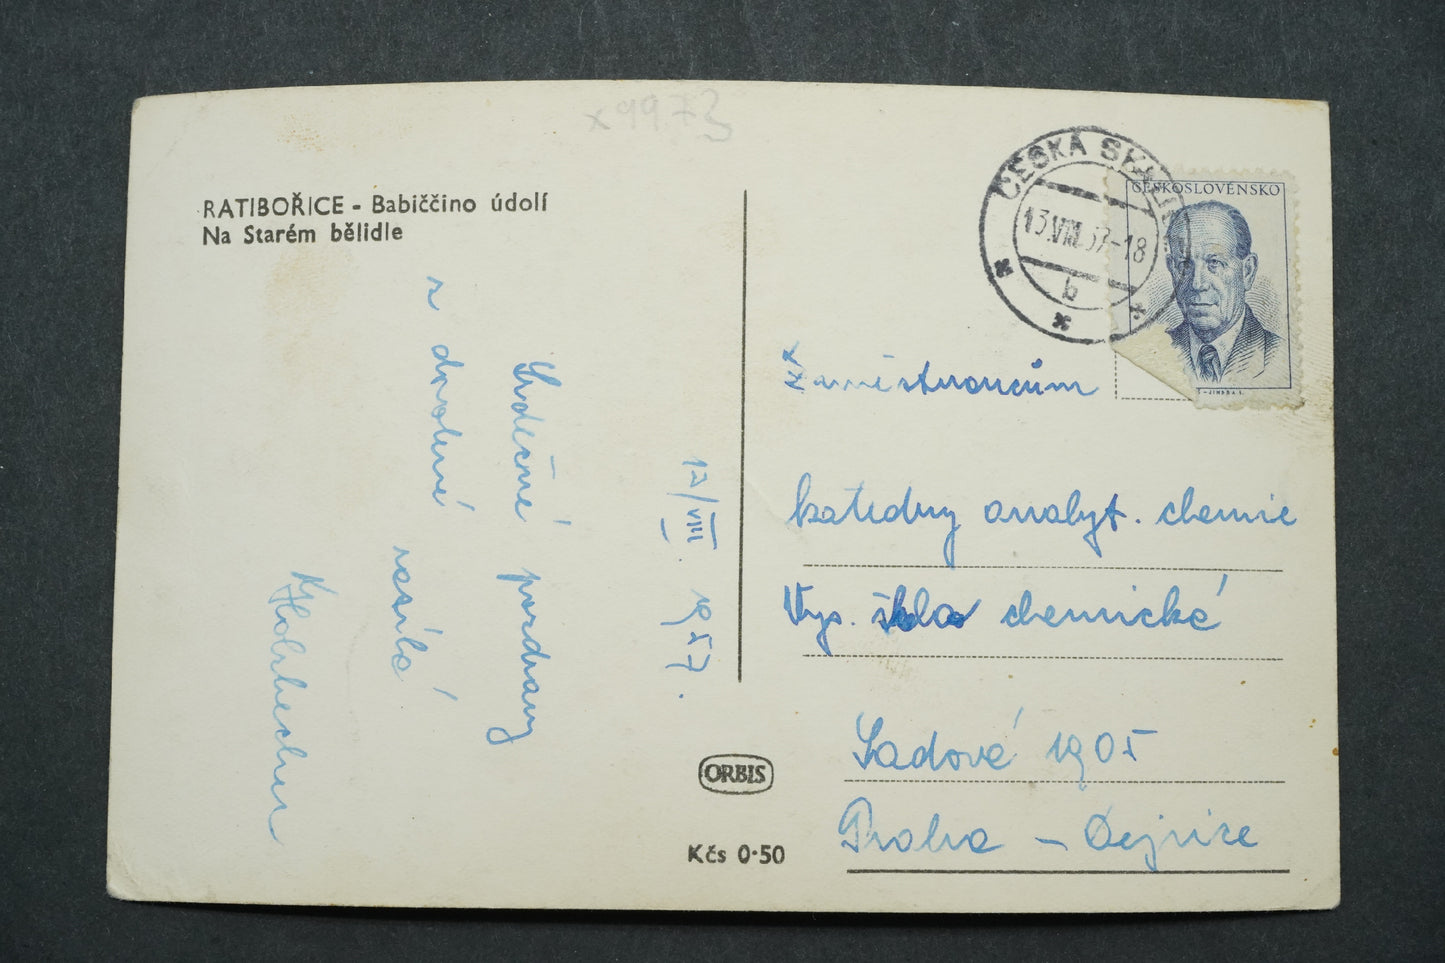 x9973
RATIBOŘICE - Babiččino údolí
Na Starém bělidle
12/VIII 1957.
Srdečné pozdravy
z dovolené zasílá
ČESKÁ SKALICE
13.VIII.57-18
b
ČESKOSLOVENSKO
Zaměstnancům
katedry analyt. chemie
Vys. škola chemické
Sadová 1905
Praha - Dejvice
ORBIS
Kčs 0·50